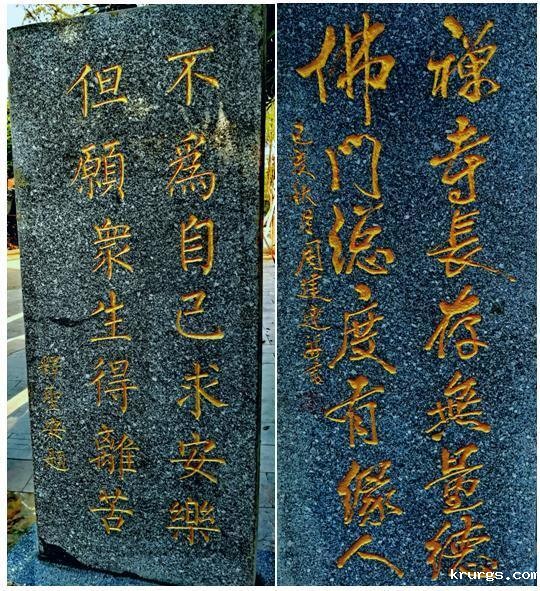 不爲自己求安樂
但願衆生得離苦
禪寺長存無量德
佛門總度有緣人
己亥秋
krurgs.com